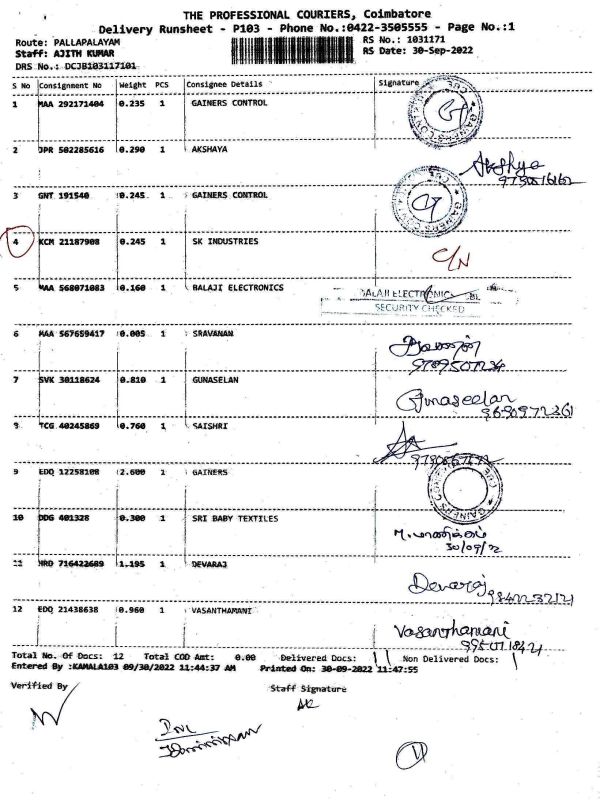 THE PROFESSIONAL COURIERS, Coimbatore
Delivery Runsheet - P103 - Phone No.:0422-3505555 - Page No.:1
Route: PALLAPALAYAM RS No.: 1031171
Staff: AJITH KUMAR RS Date: 30-Sep-2022
DRS No.: DCJB103117101
S No Consignment No Weight PCS Consignee Details Signature
1 MAA 292171404 0.235 1 GAINERS CONTROL
2 JPR 502285616 0.290 1 AKSHAYA Akshya
3 GNT 191540 0.245 1 GAINERS CONTROL
4 KCM 21187908 0.245 1 SK INDUSTRIES C/N
5 MAA 568071083 0.160 1 BALAJI ELECTRONICS
SECURITY CHECKED
6 MAA 567659417 0.005 1 SRAVANAN
9789507234
7 SVK 30118624 0.810 1 GUNASELAN Gunaseelan
TCG 40245869 0.760 1 SAISHRI
9 EDQ 12258108 2.600 1 GAINERS
10 DDG 401328 0.300 1 SRI BABY TEXTILES
30/09/22
11 HRO 716422689 1.195 1 DEVARAJ Devaraj
12 EDQ 21438638 0.960 1 VASANTHAMANI Vasanthamani
Total No. Of Docs: 12 Total COD Amt: 0.00 Delivered Docs: 11 Non Delivered Docs: 1
Entered By :KAMALA103 09/30/2022 11:44:37 AM Printed On: 30-09-2022 11:47:55
Verified By Staff Signature
11